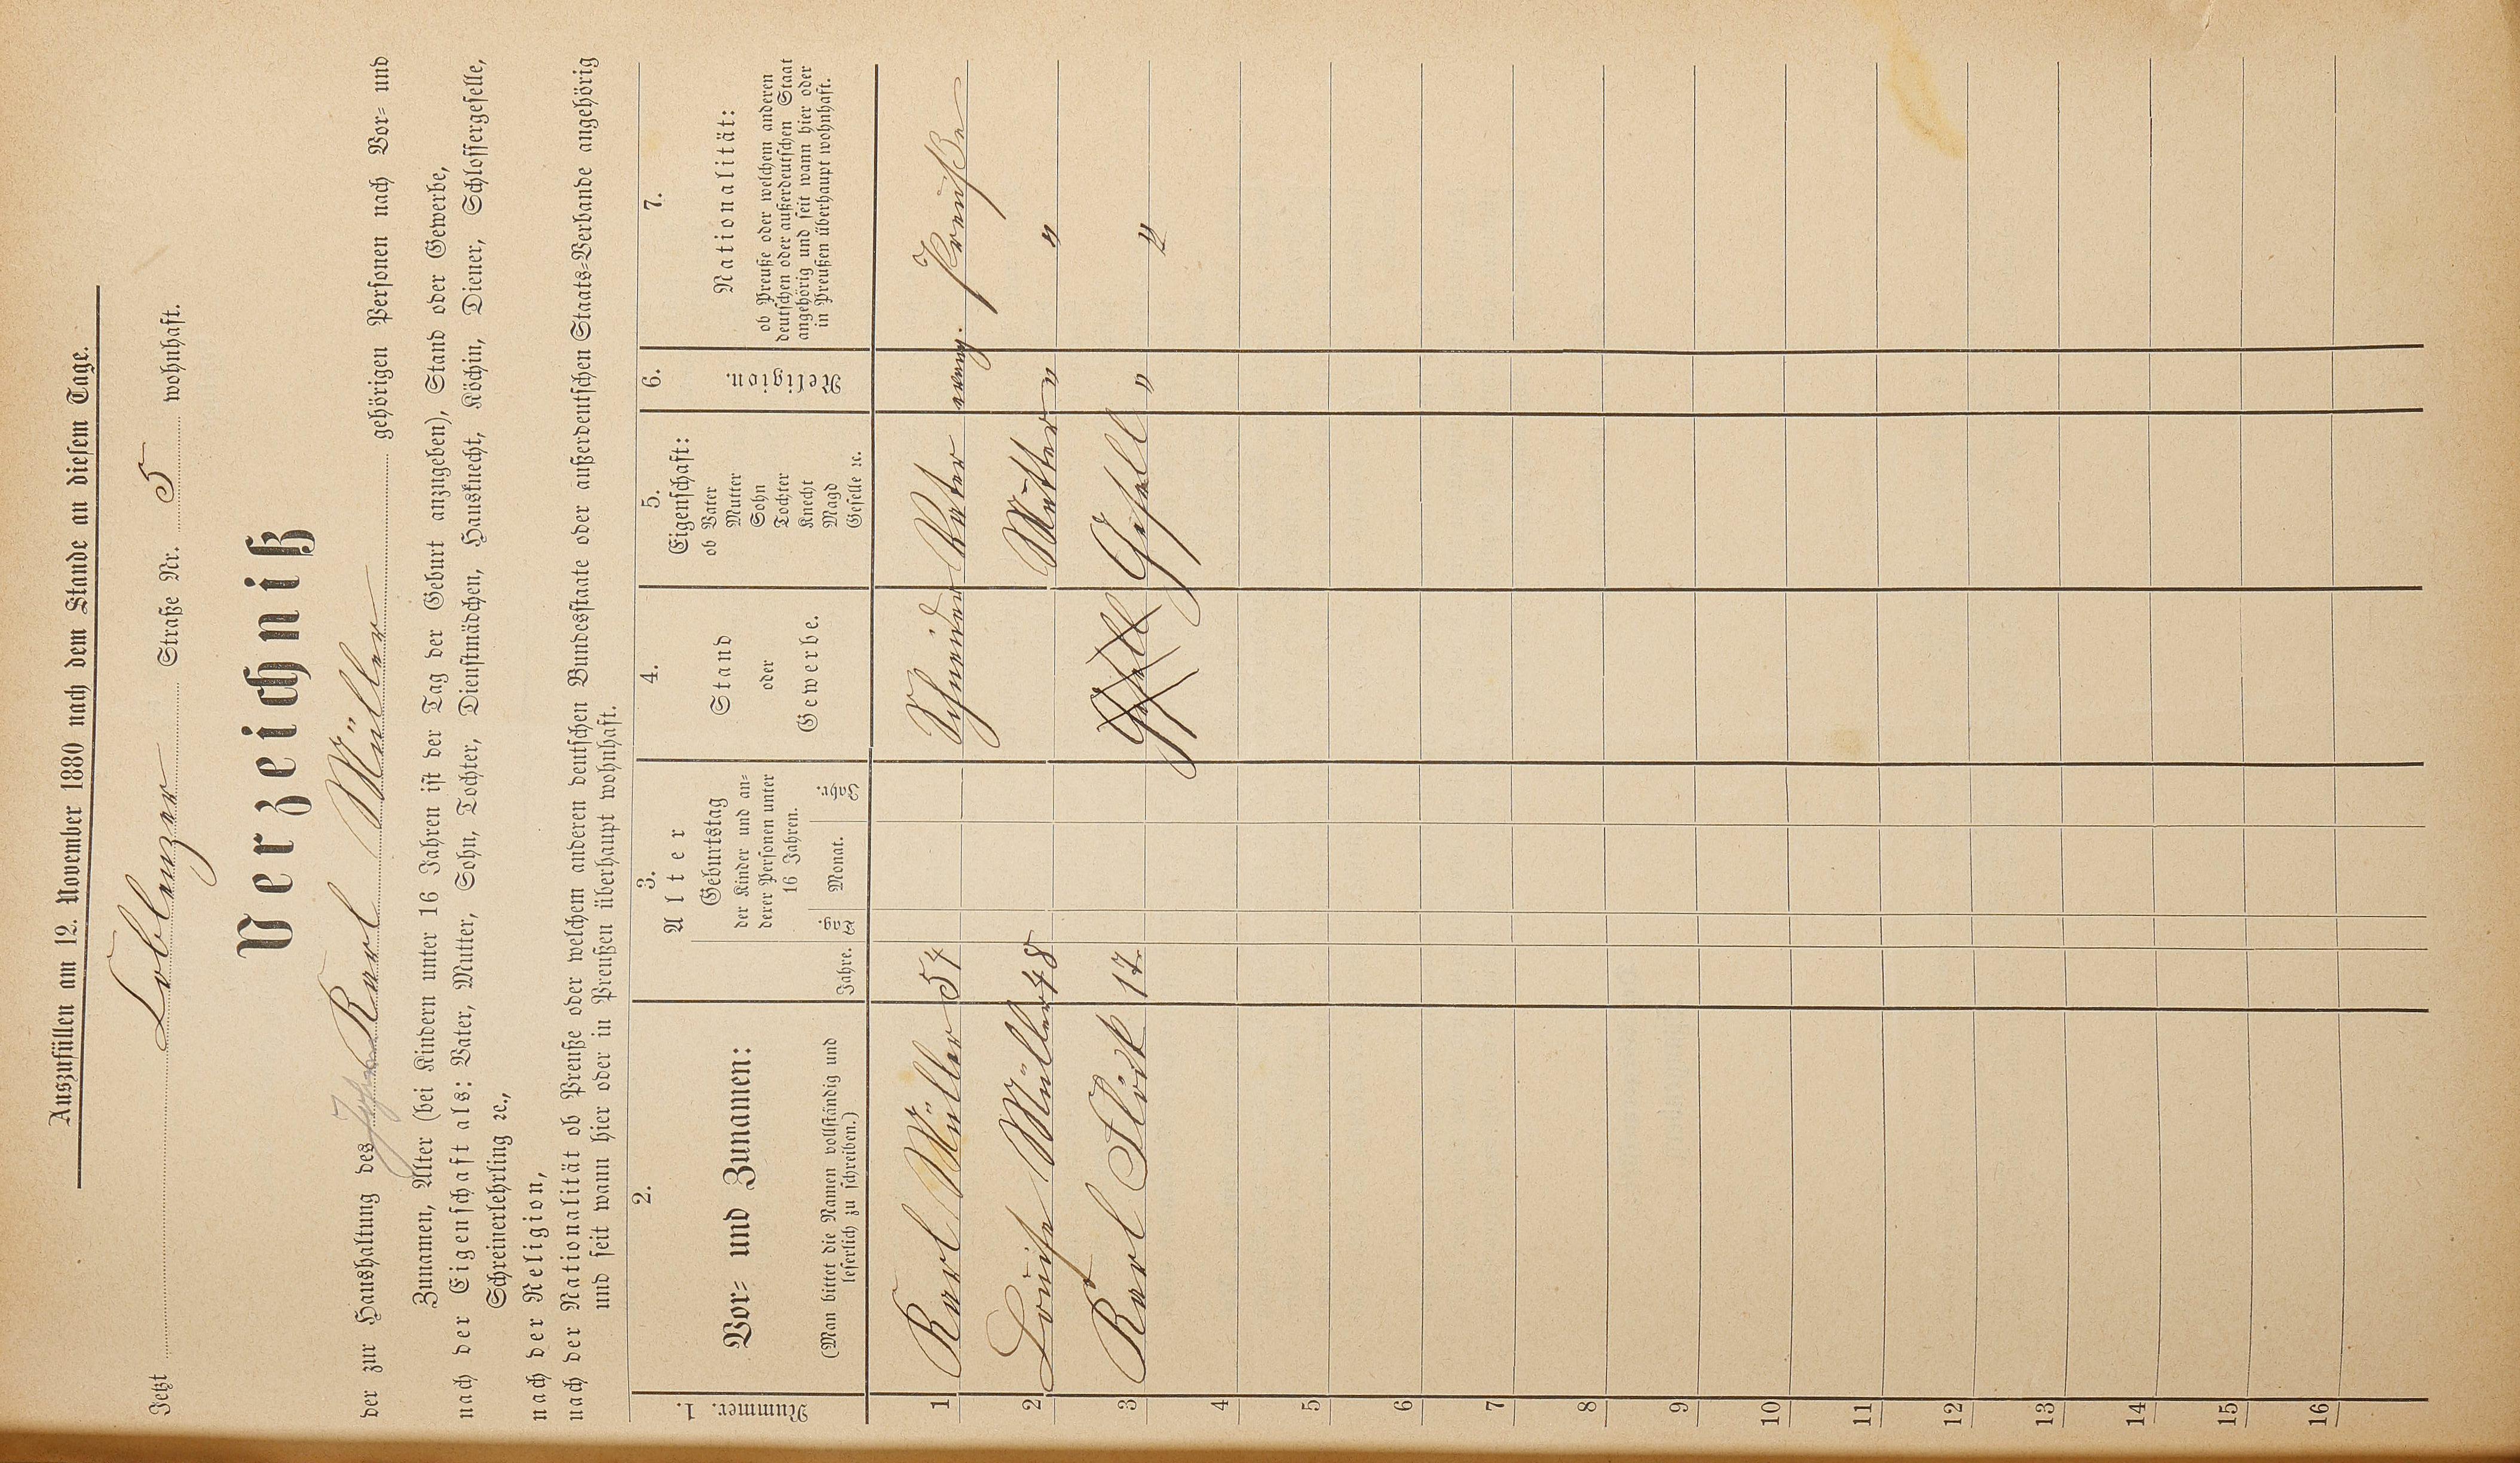 Auszufüllen am 12. November 1880 nach dem Stande an diesem Tage.
Jetzt Coblenzer Straße Nr. 5 wohnhaft.
Verzeichniß
der zur Haushaltung des Karl Müller gehörigen Personen nach Vor- und
Zunamen, Alter (bei Kindern unter 16 Jahren ist der Tag der Geburt anzugeben), Stand oder Gewerbe,
nach der Eigenschaft als: Vater, Mutter, Sohn, Tochter, Dienstmädchen, Hausknecht, Köchin, Diener, Schlossergeselle,
Schreinerlehrling ꝛc.,
nach der Religion,
nach der Nationalität ob Preuße oder welchem anderen deutschen Bundesstaate oder außerdeutschen Staats-Verbande angehörig
und seit wann hier oder in Preußen überhaupt wohnhaft.
1. Nummer.
2.
Vor- und Zunamen:
(Man bittet die Namen vollständig und
leserlich zu schreiben.)
3.
Alter
Jahre.
Geburtstag
der Kinder und an-
derer Personen unter
16 Jahren.
Tag. Monat. Jahr.
4.
Stand
oder
Gewerbe.
5.
Eigenschaft:
ob Vater
Mutter
Sohn
Tochter
Knecht
Magd
Geselle ꝛc.
6.
Religion.
7.
Nationalität:
ob Preuße oder welchem anderen
deutschen oder außerdeutschen Staat
angehörig und seit wann hier oder
in Preußen überhaupt wohnhaft.
1 Karl Müller 54 Schneider Vater evang. Preuße
2 Louise Müller 48 Mutter " "
3 Karl Flöck 17 Gesell Gesell " "
4
5
6
7
8
9
10
11
12
13
14
15
16